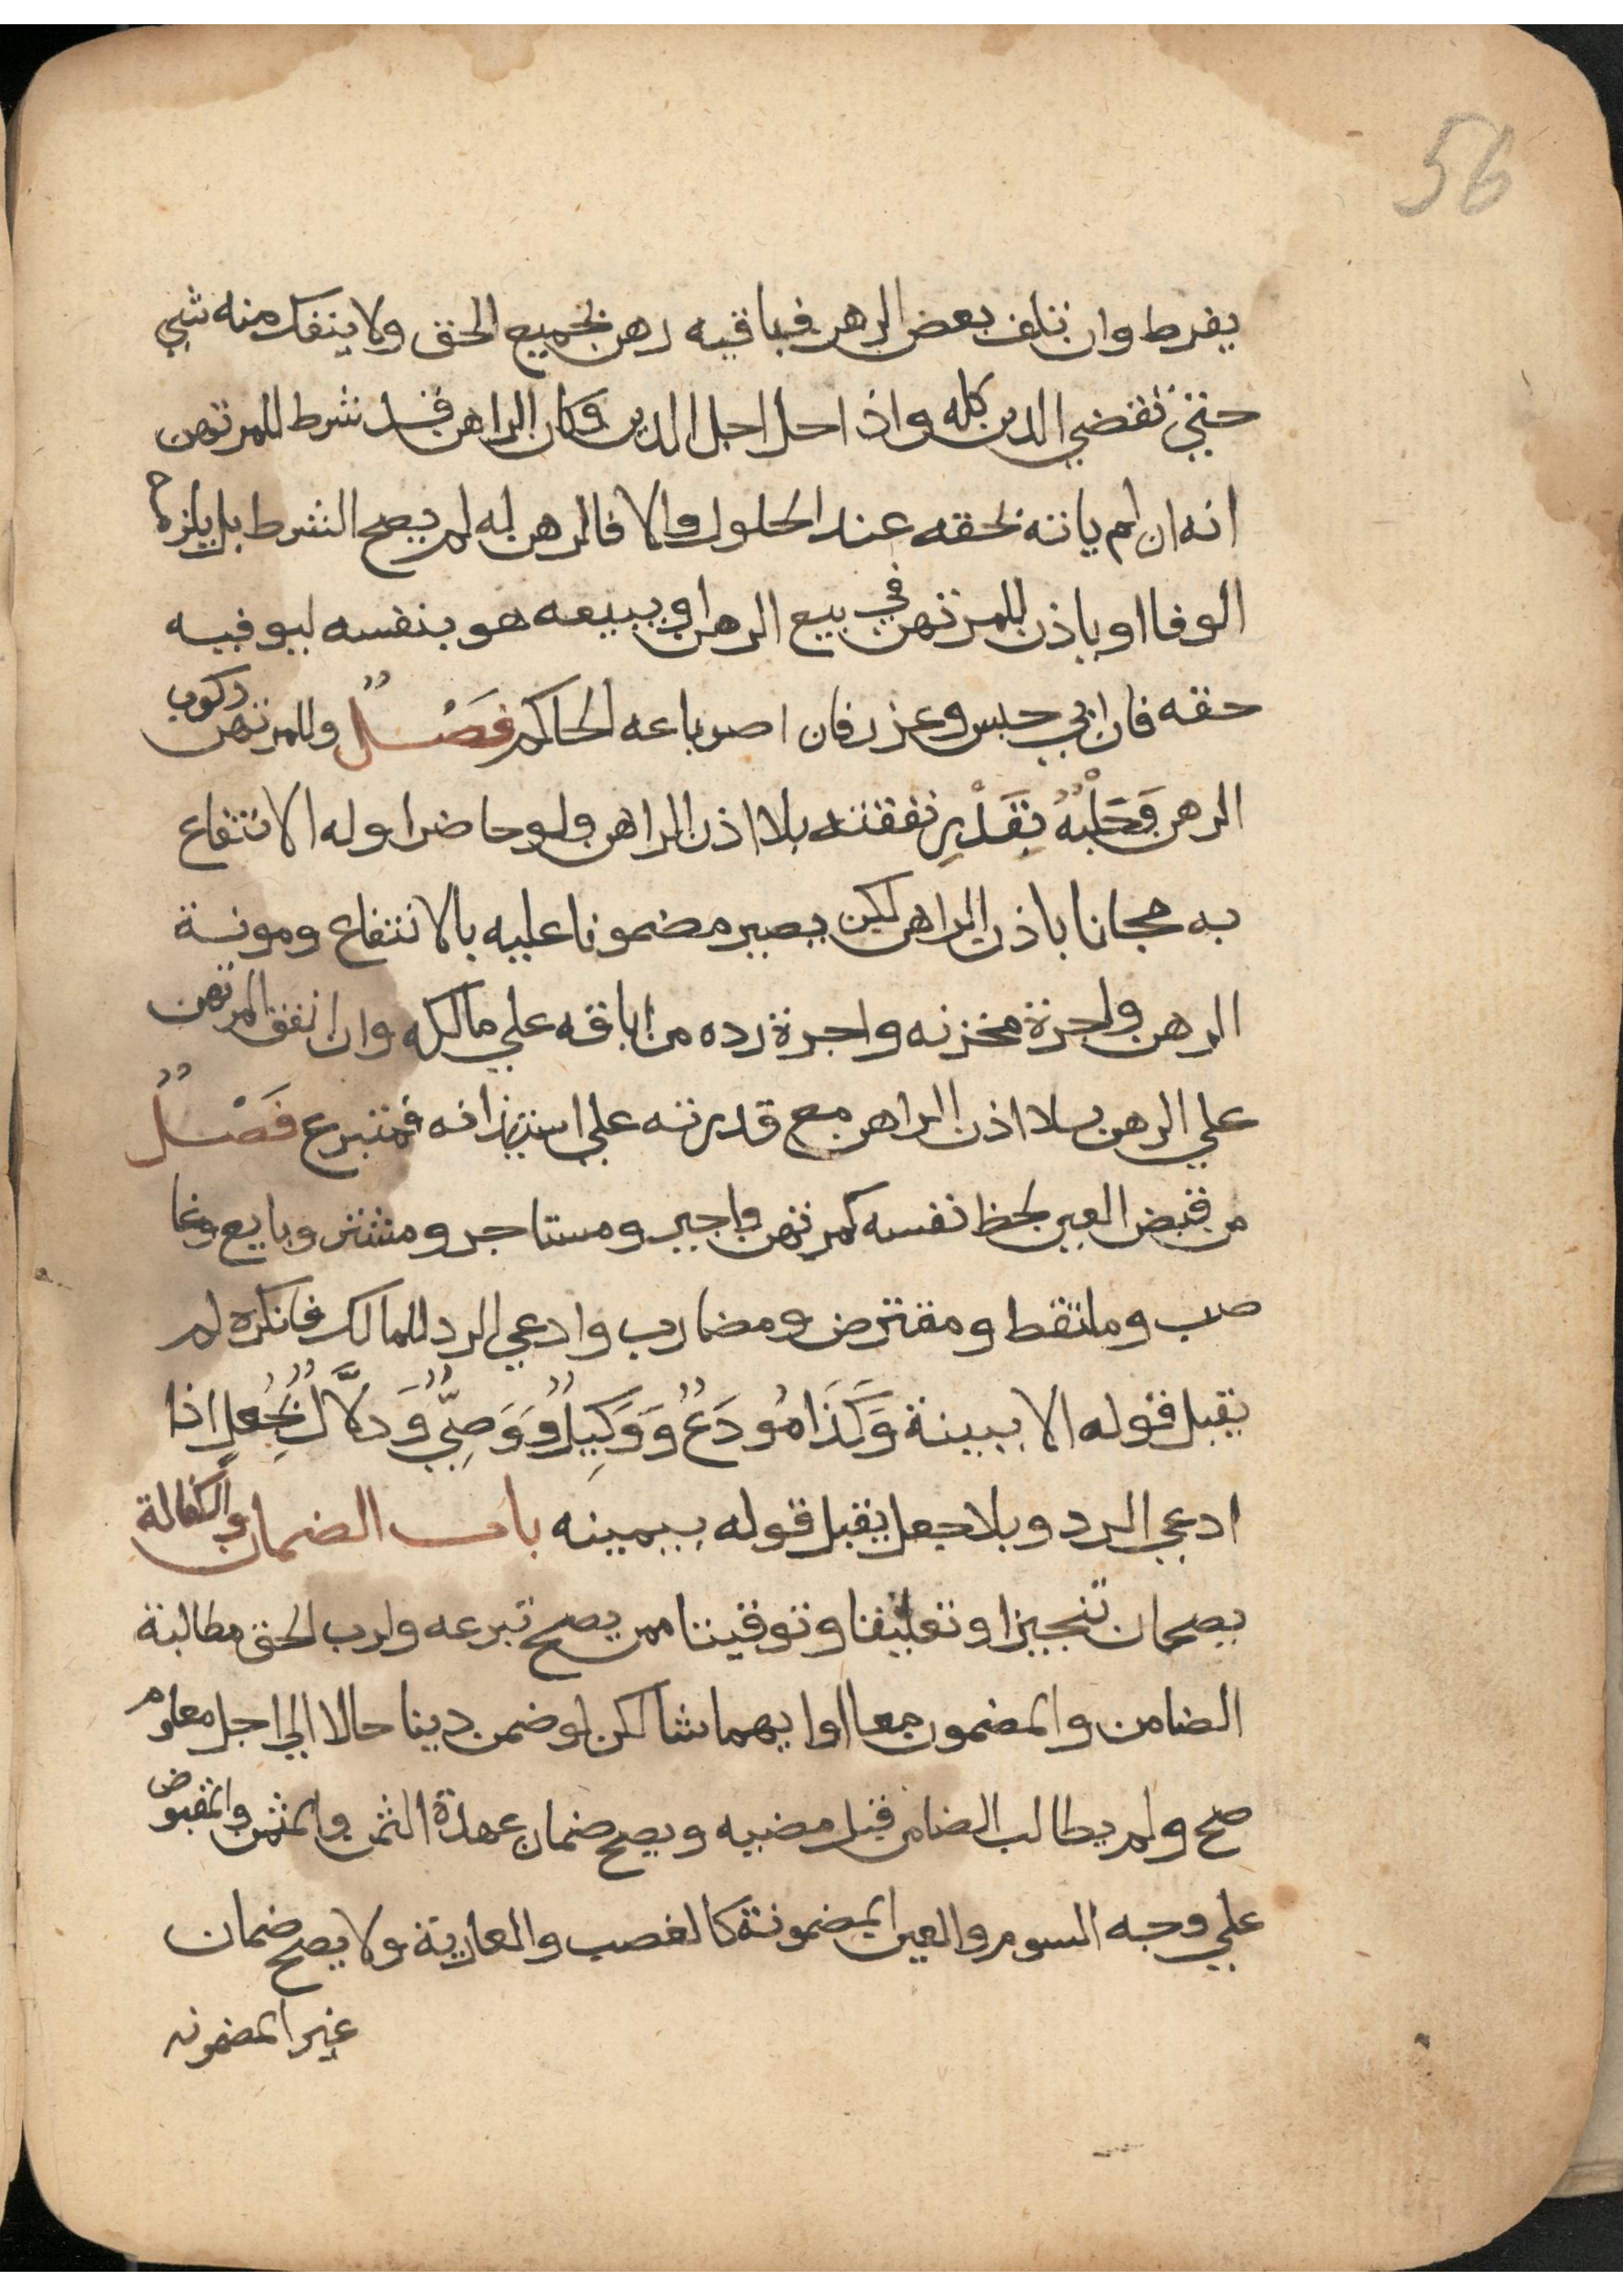 56
يفرط وان تلف بعض الرهن فباقيه رهن بجميع الحق ولا ينفك منه شي
حتي تقضي الدين كله واذا حل اجل الدين وكان الراهن قد شرط للمرتهن
انه ان لم ياته بحقه عند الحلول والا فالرهن له لم يصح الشرط بل يلزمه
الوفا او ياذن للمرتهن في بيع الرهن او يبيعه هو بنفسه ليوفيه
حقه فان ابي حبس وعزر فان اصر باعه الحاكم فَصْــلٌ وللمرتهن ركوب
الرهن وَحَلْبُهُ بِقَدْرِ نفقته بلا اذن الراهن ولو حاضرا وله الانتفاع
به مجانا باذن الراهن لكن يصير مضمونا عليه بالانتفاع ومونة
الرهن واجرة مخزنه واجرة رده من اباقه علي مالكه وان انفق المرتهن
علي الرهن بلا اذن الراهن مع قدرته علي استيذانه فمتبرع فَصْــلٌ
من قبض العين لحظ نفسه كمرتهن واجير ومستاجر ومشتر وبايع وغا
صب وملتقط ومقترض ومضارب وادعي الرد للمالك فانكره لم
يقبل قوله الا ببينة وَكَذَا مُودَعٌ وَوَكِيلٌ وَوَصِيٌّ وَدلَّالٌ بِجُعلٍ اذا
ادعي الرد وبلا جعل يقبل قوله بيمينه باب الضمان والكفالة
يصحان تنجيزا وتعليقا وتوقيتا ممن يصح تبرعه ولرب الحق مطالبة
الضامن والمضمون معا او ايهما شا لكن لو ضمن دينا حالا الي اجل معلوم
صح ولم يطالب الضامن قبل مضيه ويصح ضمان عهدة الثمن والمثمن والمقبوض
علي وجه السوم والعين المضمونة كالغصب والعارية ولا يصح ضمان
غير المضمونه